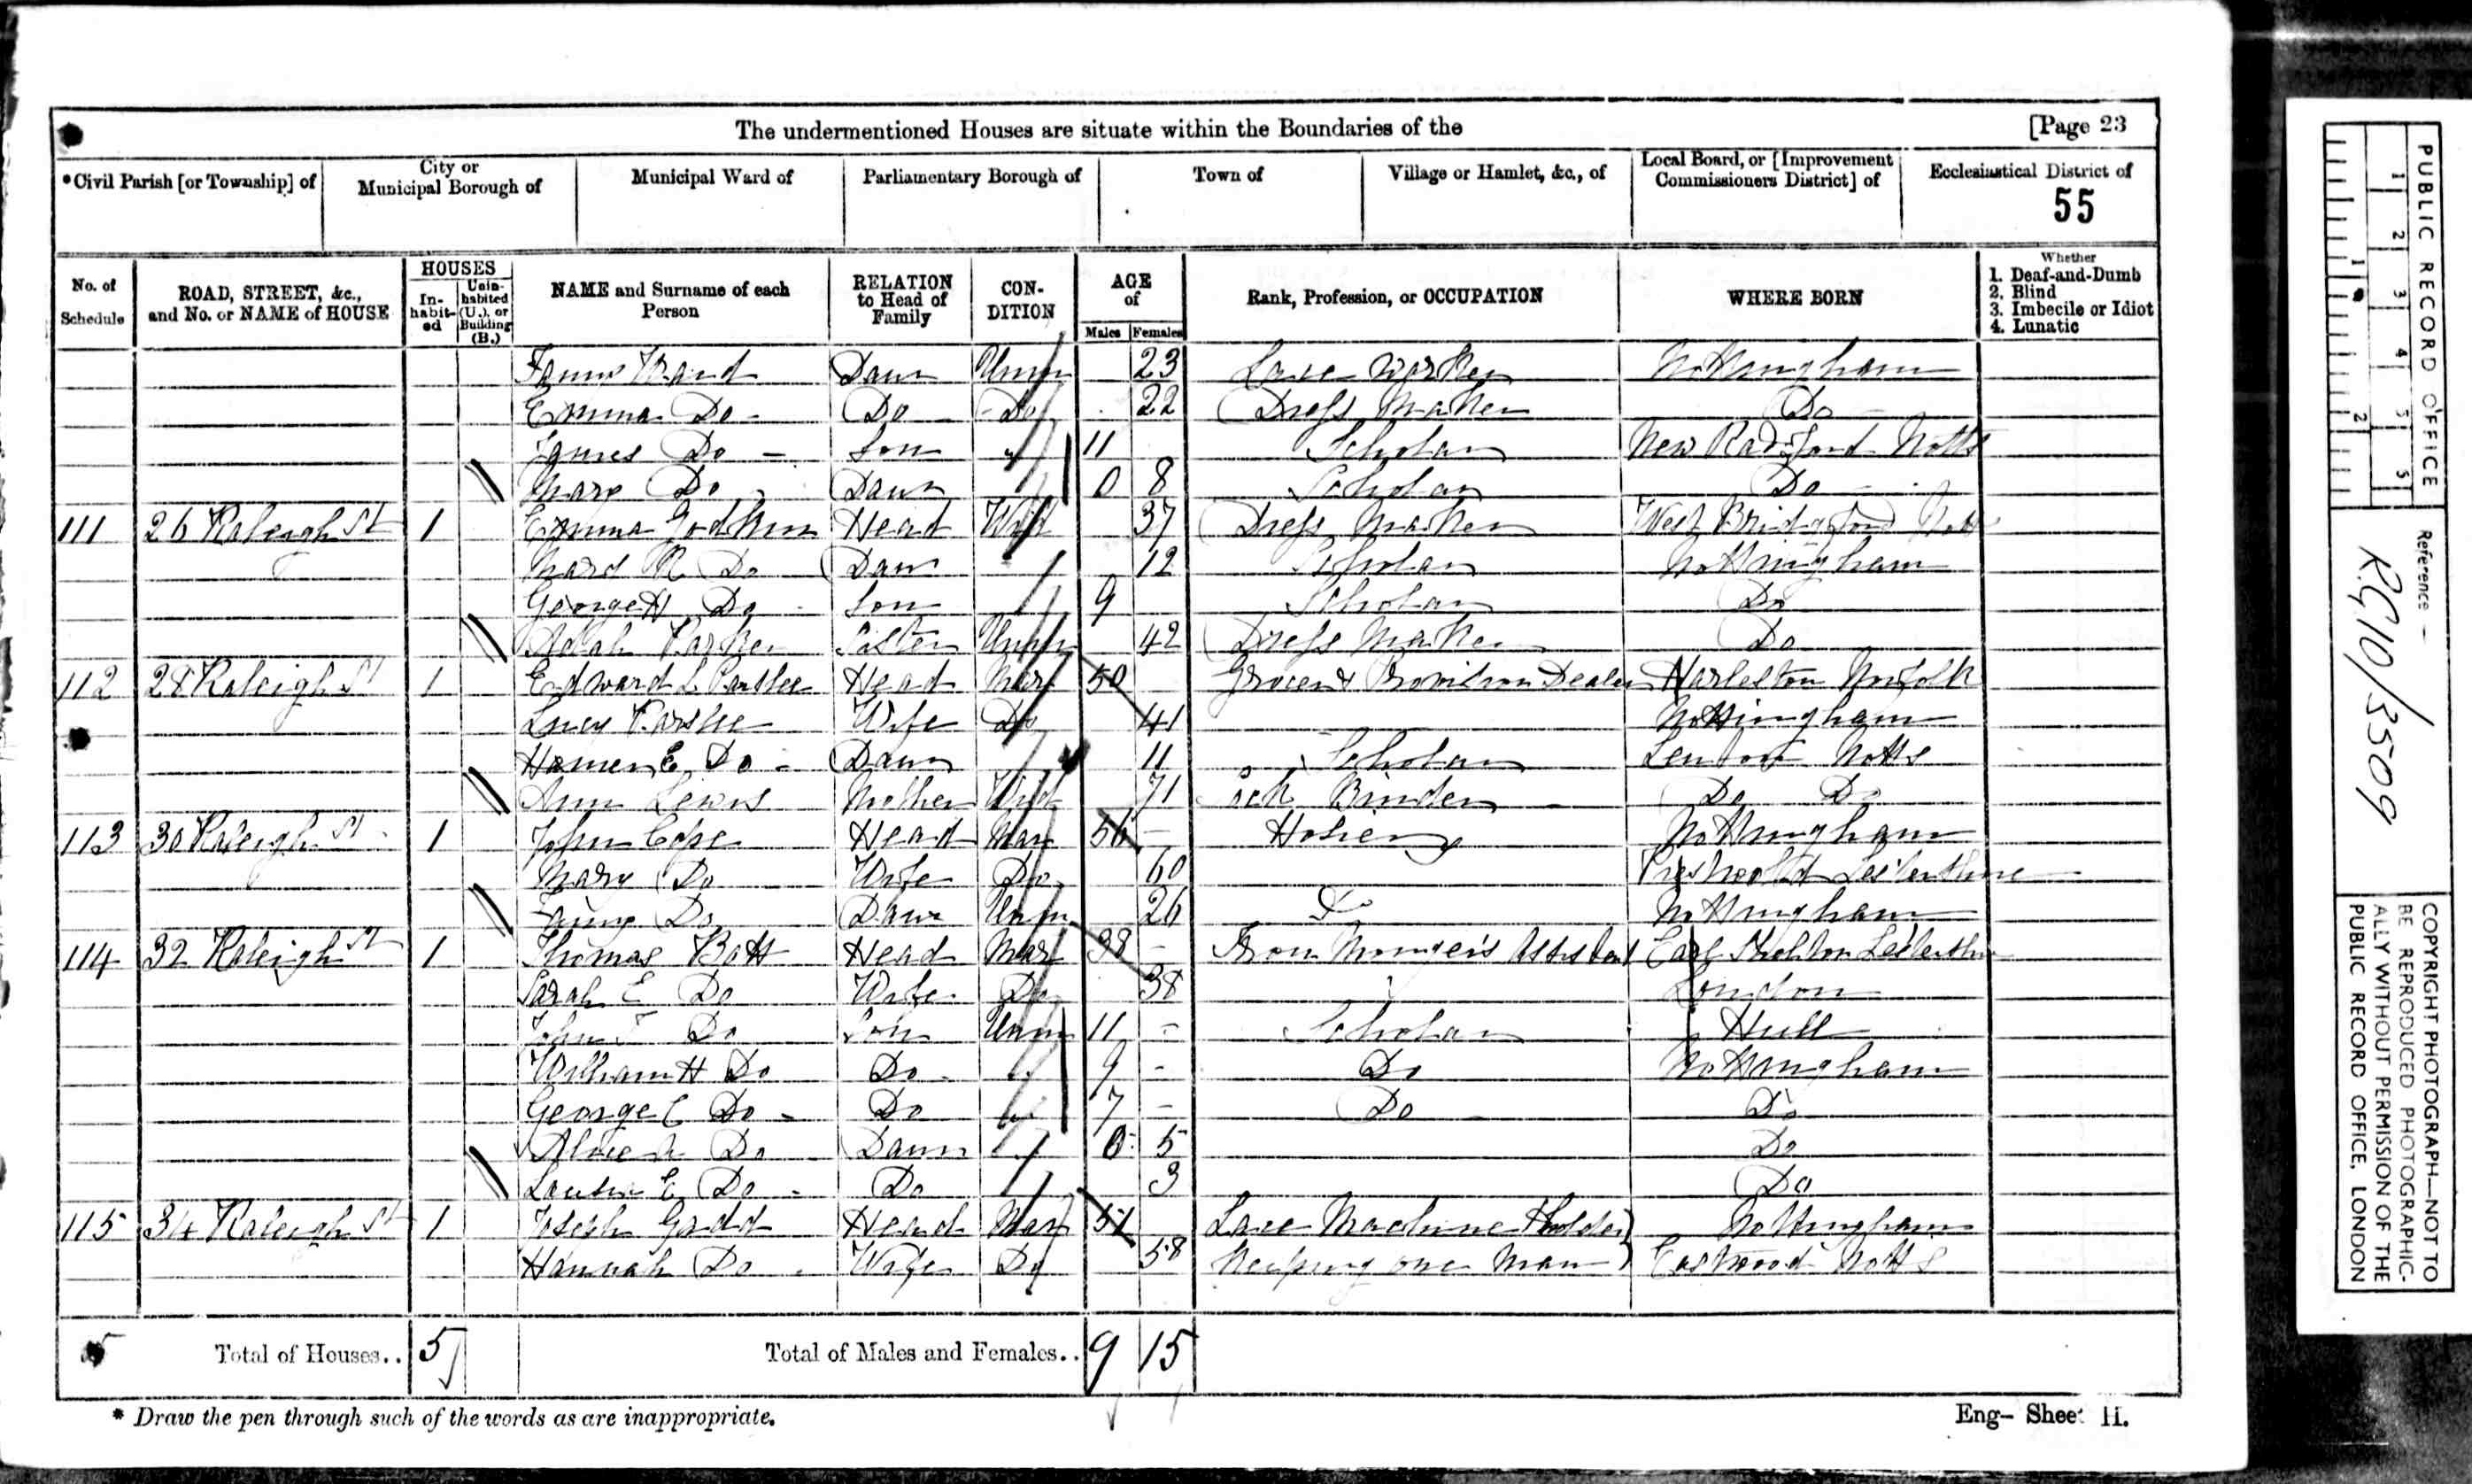 The undermentioned Houses are situate within the Boundaries of the [Page 23
*Civil Parish [or Township] of
City or Municipal Borough of
Municipal Ward of
Parliamentary Borough of
Town of
Village or Hamlet, &c., of
Local Board, or [Improvement Commissioners District] of
Ecclesiastical District of
55
No. of Schedule
ROAD, STREET, &c., and No. or NAME of HOUSE
HOUSES
In-habit-ed
Unin-habited (U.), or Building (B.)
NAME and Surname of each Person
RELATION to Head of Family
CON-DITION
AGE of
Males
Females
Rank, Profession, or OCCUPATION
WHERE BORN
Whether
1. Deaf-and-Dumb
2. Blind
3. Imbecile or Idiot
4. Lunatic
Ward Daur Unm 23 Lace Worker Nottingham
Emma Do Do Do 22 Dress Maker Do
James Do Son 11 Scholar New Radford Notts
Mary Do Daur 0 8 Scholar Do
111 26 Raleigh St 1 Emma Godkin Head Wid 37 Dress Maker West Bridgford Notts
R Do Daur 12 Scholar Nottingham
George H Do Son 9 Scholar Do
Parker Sister Unm 42 Dress Maker Do
112 28 Raleigh St 1 Edward L Parslee Head Mar 50 Grocer & Provision Dealer Harleston Norfolk
Lucy Parslee Wife Do 41 Nottingham
E Do Daur 11 Scholar Lenton Notts
Ann Lewis Mother Wid 71 Binder Do Do
113 30 Raleigh St 1 John Cope Head Mar 56 Hosiery Nottingham
Mary Do Wife Do 60 Prestwold Leistershire
Do Daur Unm 26 Do Nottingham
114 32 Raleigh St 1 Thomas Bott Head Mar 38 Iron Monger's Assistant Earl Leistershire
Sarah E Do Wife Do 38 London
John T Do Son Unm 11 Scholar Hull
William H Do Do 9 Do Nottingham
George C Do Do 7 Do Do
Alice Do Daur 0 5 Do
Louisa E Do Do 3 Do
115 34 Raleigh St 1 Joseph Gadd Head Mar 51 Lace Machine Holder Nottingham
Hannah Do Wife Do 58 Keeping one Man Eastwood Notts
Total of Houses.. 5
Total of Males and Females.. 9 15
* Draw the pen through such of the words as are inappropriate.
Eng- Sheet H.
PUBLIC RECORD OFFICE
Reference
R.G.10/3509
COPYRIGHT PHOTOGRAPH—NOT TO
BE REPRODUCED PHOTOGRAPHIC-
ALLY WITHOUT PERMISSION OF THE
PUBLIC RECORD OFFICE, LONDON